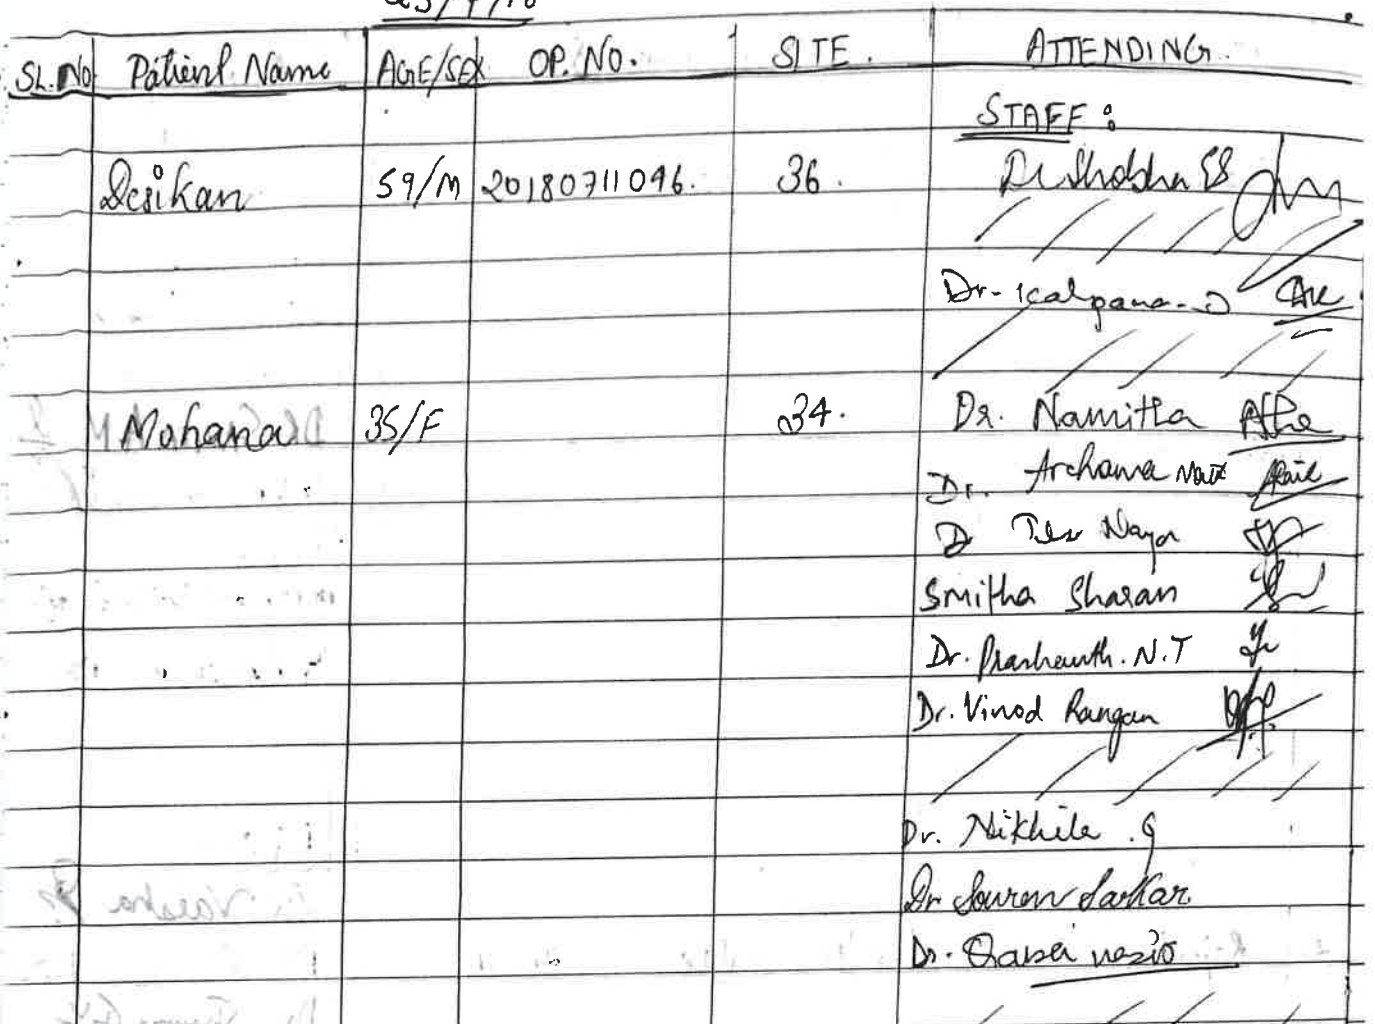 SL.No Patient Name AGE/SEX OP.NO. SITE. ATTENDING.
STAFF :
Desikan 59/M 20180711096. 36. Dr Shobha ES
Dr. Kalpana. D
Mohana 35/F 34. Dr. Namitha
Dr. Archana
D
Smitha Sharan
Dr. Prashanth. N.T
Dr. Vinod Rangan
Dr. Nikhila . G
Dr Souren Sarkar
Dr.